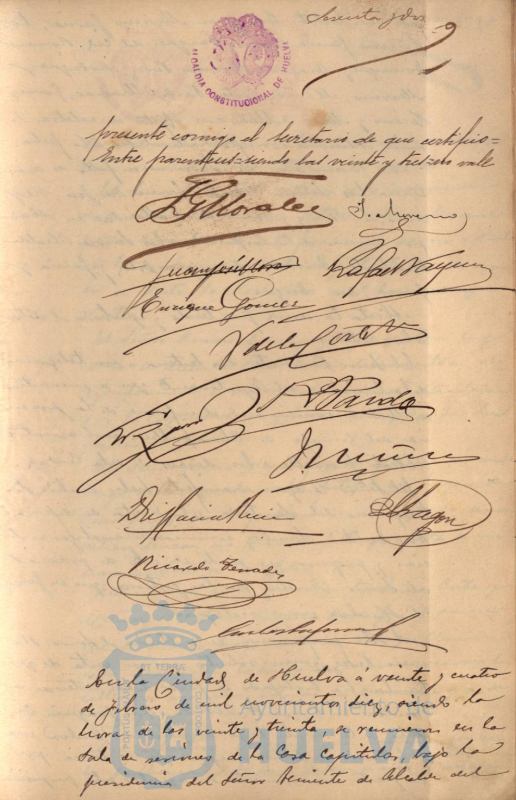 Sesenta y dos
ALCALDIA CONSTITUCIONAL DE HUELVA
presente conmigo el Secretario de que certifico=
Entre parentesis=siendo las veinte y tres=no vale
Morales
J. Moreno
Juan José Mora
Rafael Vazquez
Enrique Gomez
V de la Corte
R Pardo
J Muñiz
Aragon
Ricardo Terrades
Carlos
En la Ciudad de Huelva á veinte y cuatro
de febrero de mil novecientos diez, siendo la
hora de las veinte y treinta, se reunieron en la
Sala de sesiones de la Casa Capitular, bajo la
presidencia del Señor Teniente de Alcalde del
Ayuntamiento de
HUELVA